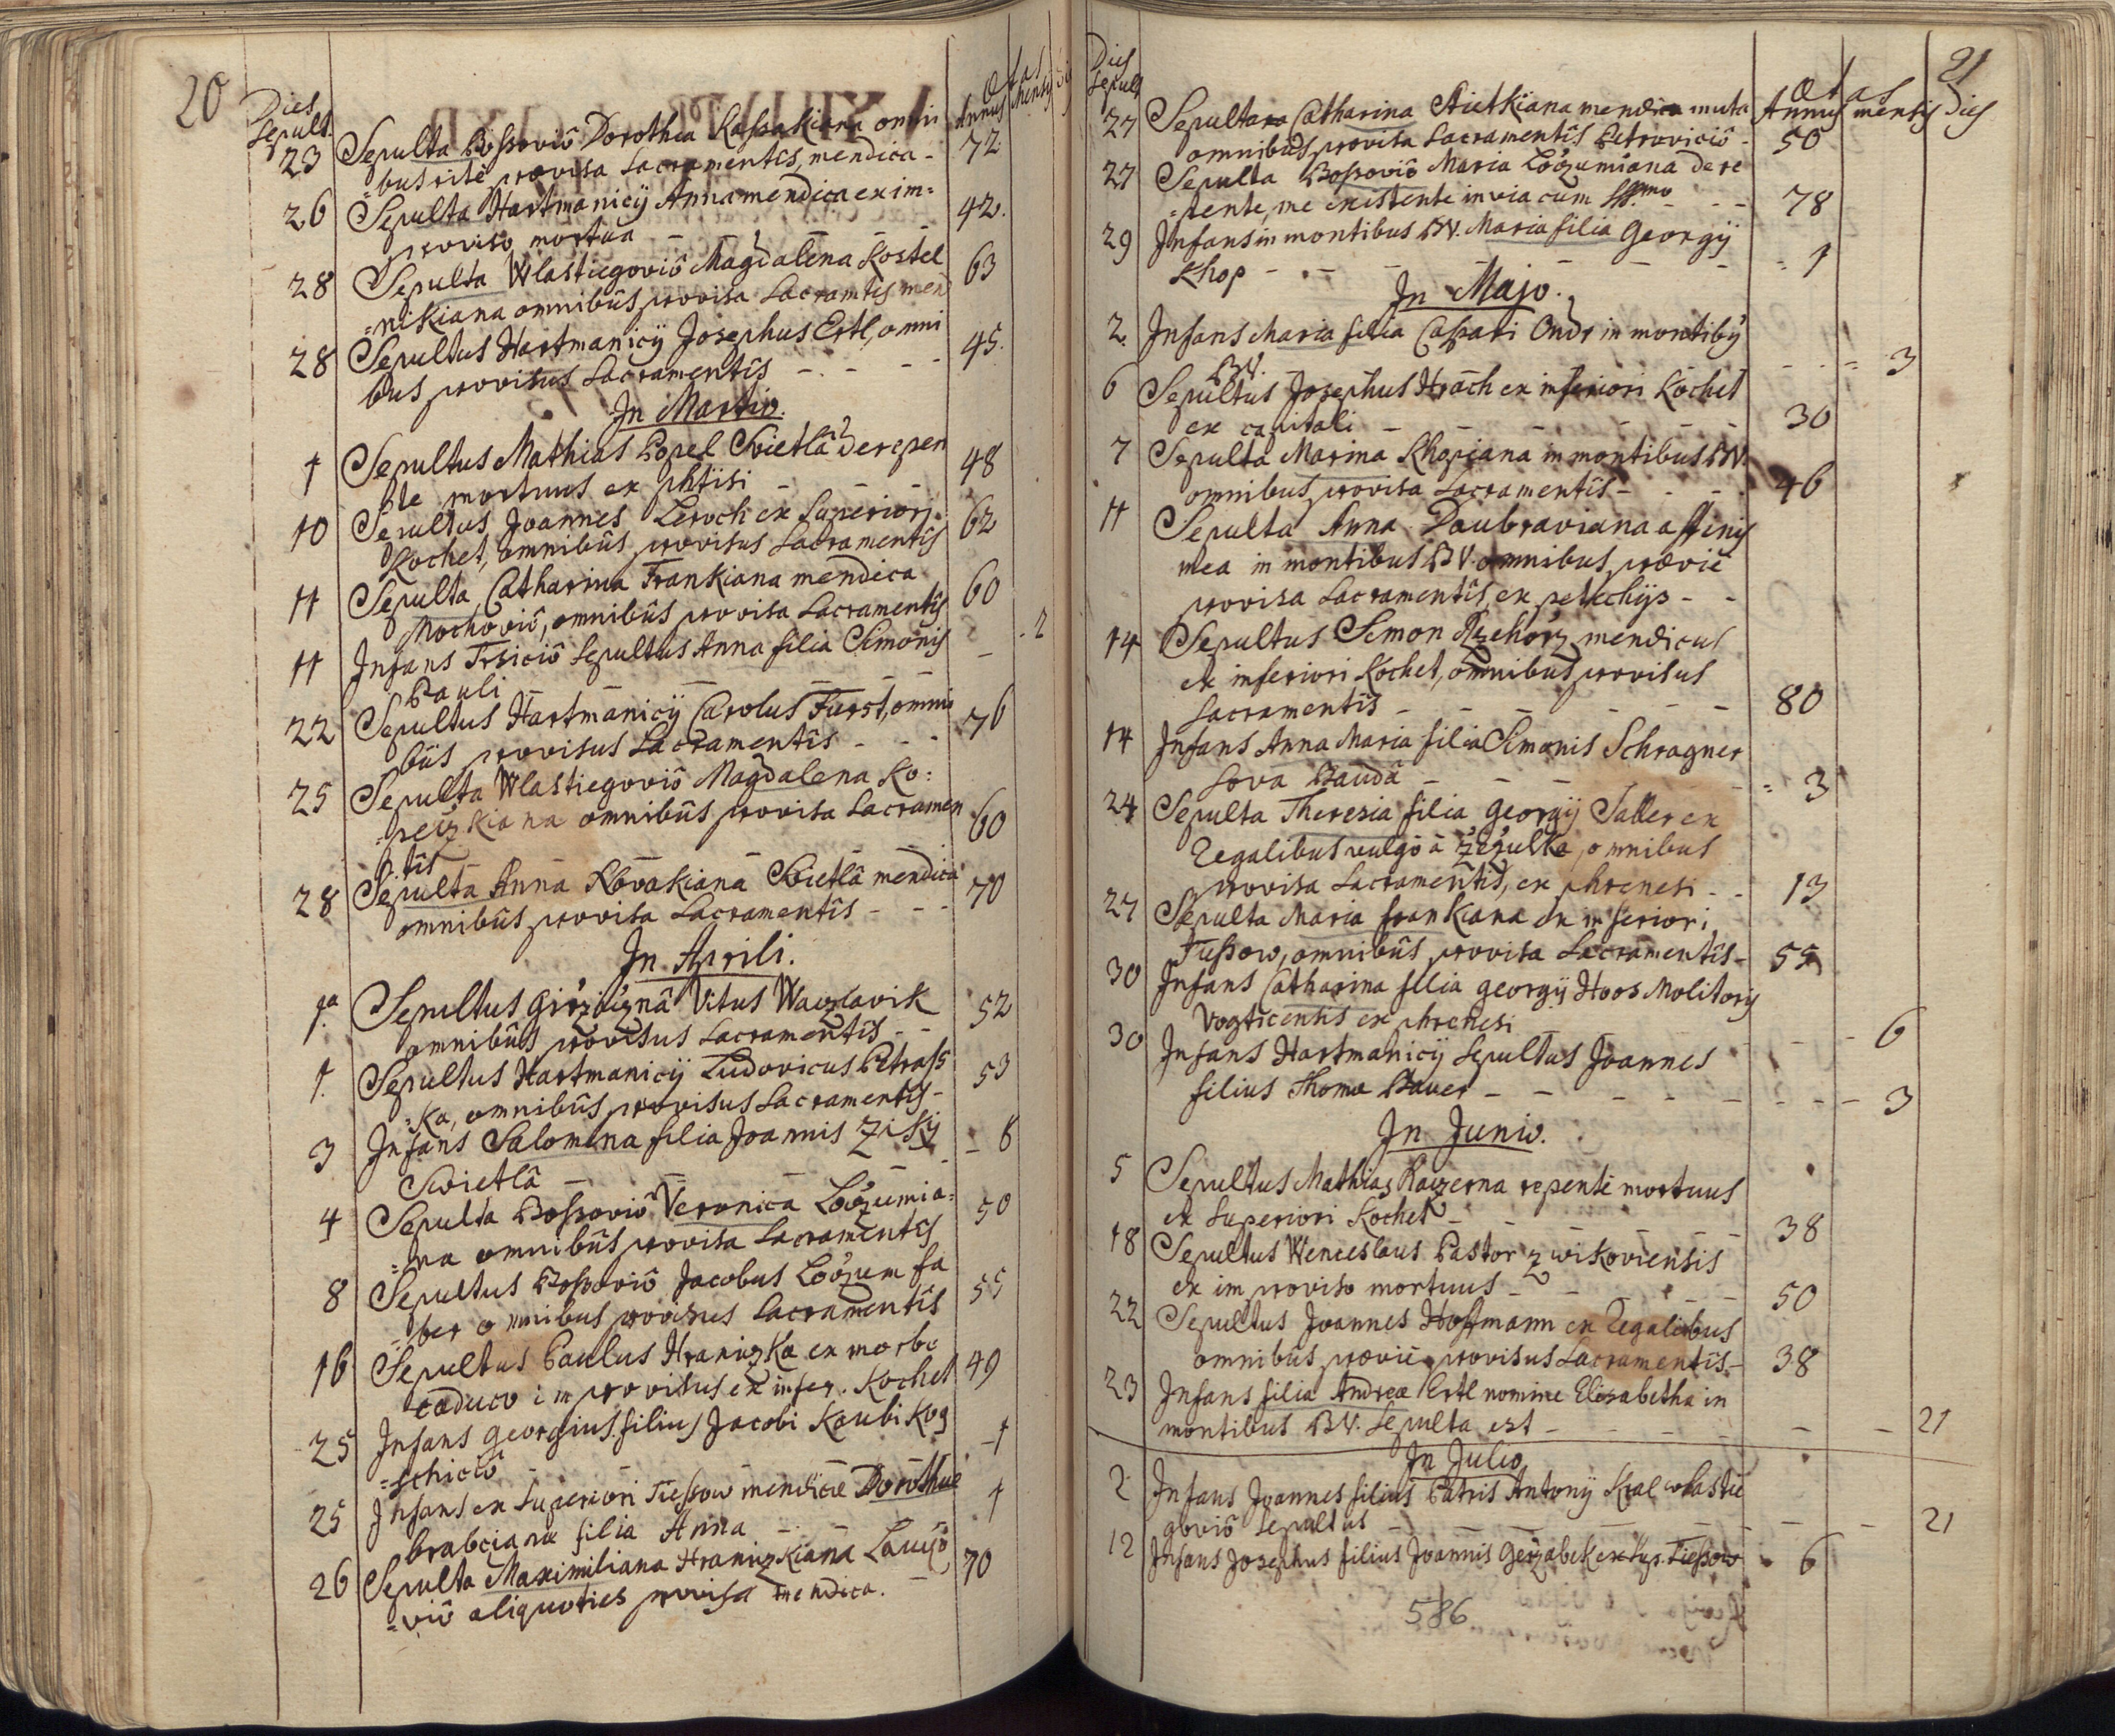 20
Dies sepult. Ætas Annus Mensis
23 Sepulta Bossoviô Dorothea Kassakiana omni 72
=bus rite provisa Sacramentis, mendica -
26 Sepulta Hartmanicÿ Anna mendica ex im= 42.
proviso mortua - - - -
28 Sepulta Wlastiegoviô Magdalena Kostel 63
=nikiana omnibûs provisa Sacramtis men
28 Sepultus Hartmanicÿ Josephus Ertl, omni 45.
bus provisus Sacramentis - - - -
In Martio.
1 Sepultus Mathias Popel Svietlâ derepen 48
te mortuus ex phtisi - - -
10 Sepultus Joannes Leroch ex Superiori 62
Kochet, omnibûs provisus Sacramentis
11 Sepulta Catharina Frankiana mendica 60
Mochoviô, omnibûs provisa Sacramentis
11 Infans Trsiciô sepultus Anna filia Simonis - - 2
Pauli - - - - -
22 Sepultus Hartmanicÿ Carolus Fürst, omni 76
bûs provisus Sacramentis - - -
25 Sepulta Wlastiegoviô Magdalena Ko=
peczkiana omnibûs provisa Sacramen 60
tis - - - - -
28 Sepulta Anna Novakiana Svietlâ mendica 70
omnibûs provisa Sacramentis - - -
In Aprili.
1a Sepultus Girziczna Vitus Waczlavik 52
omnibûs provisus Sacramentis - -
1. Sepultus Hartmanicÿ Ludovicus Petrass 53
=ka, omnibûs provisus Sacramentis -
3 Infans Salomena filia Joannis Zisky - 6
Swietlâ - - - -
4 Sepulta Bossoviô Veronica Loozumia= 50
=na omnibûs provisa Sacramentis
8 Sepultus Bossoviô Jacobus Loozum fa 55
=ber omnibus provisus Sacramentis
16 Sepultus Paulus Hraniczka ex morbo 49
caduco improvisus ex infer. Kochet
25 Infans Georgius filius Jacobi Kaubi Kog - 1
=schiciô - - - -
25 Infans ex Superiori Tiessow mendicæ Dorotheæ 1
brabcianæ filia Anna - - -
26 Sepulta Maximiliana Hraniczkiana 70
=viô aliquoties provisa mendica. -
21
Dies sepult Ætas Annus mensis Dies
27 Sepulta Catharina Stietkiana mendica muta
omnibus provisa Sacramentis Petroviciô - 50
27 Sepulta Bossoviô Maria Loozumiana de re
=pente, me existente in via cum SS.mo - - - 78
29 Infans in montibus BV. Maria filia Georgÿ
Khop - - - - - - = 1
In Majo.
2. Infans Maria filia Caspari Ondr in montibus
BV. - - = 3
6 Sepultus Josephus Hrach ex inferiori Kochet
ex capitali - - - - - 30
7 Sepulta Marina Khopiana in montibus BV.
omnibus provisa Sacramentis - - - 46
11 Sepulta Anna Daubraviana affinis
mea in montibus BV. omnibus prævie
provisa Sacramentis, ex petechijs - -
14 Sepultus Simon Rzehorz mendicus
ex inferiori Kochet, omnibus provisus
Sacramentis - - - - - - 80
14 Infans Anna Maria filia Simonis Schragner
Sova Bauda - - - - = 3
24 Sepulta Theresia filia Georgÿ Saller ex
Regalibus vulgo a Zezulka, omnibus
provisa Sacramentis, ex phrenesi - - 13
27 Sepulta Maria frankiana ex inferiori
Tiessow, omnibûs provisa Sacramentis - 55
30 Infans Catharina filia georgÿ Hoos Molitoris
Vogticensis ex phrenesi - - - 6
30 Infans Hartmanicÿ sepultus Joannes
filius Thomæ Bauer - - - - - - - 3
In Junio.
5 Sepultus Mathias Kaczerna repente mortuus
ex Superiori Kochet - - - - - 38
18 Sepultus Wenceslaus Pastor Zwikoviensis
ex improviso mortuus - - - - - 50
22 Sepultus Joannes Hoffmann ex Regalibus
omnibus prævie provisus Sacramentis - 38
23 Infans filia Andreæ Ertl nomine Elisabetha in
montibus BV. Sepulta est - - - - - - 21
In Julio
2 Infans Joannes filius Patris Antonÿ Kral wlastie
goviô sepultus - - - - - - 21
12 Infans Josephus filius Joannis Gerzabek ex Sup. Tiessow - 6
586